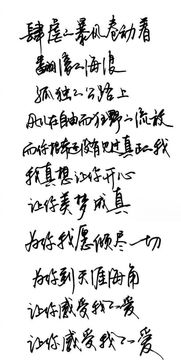 肆虐的暴风卷动着
翻滚的海浪
孤独的公路上
自由而狂野的流放
而你 没有见过真正的我
我真想让你开心
让你美梦成真
为你我愿倾尽一切
为你到天涯海角
让你感受我的爱
让你感受我的爱